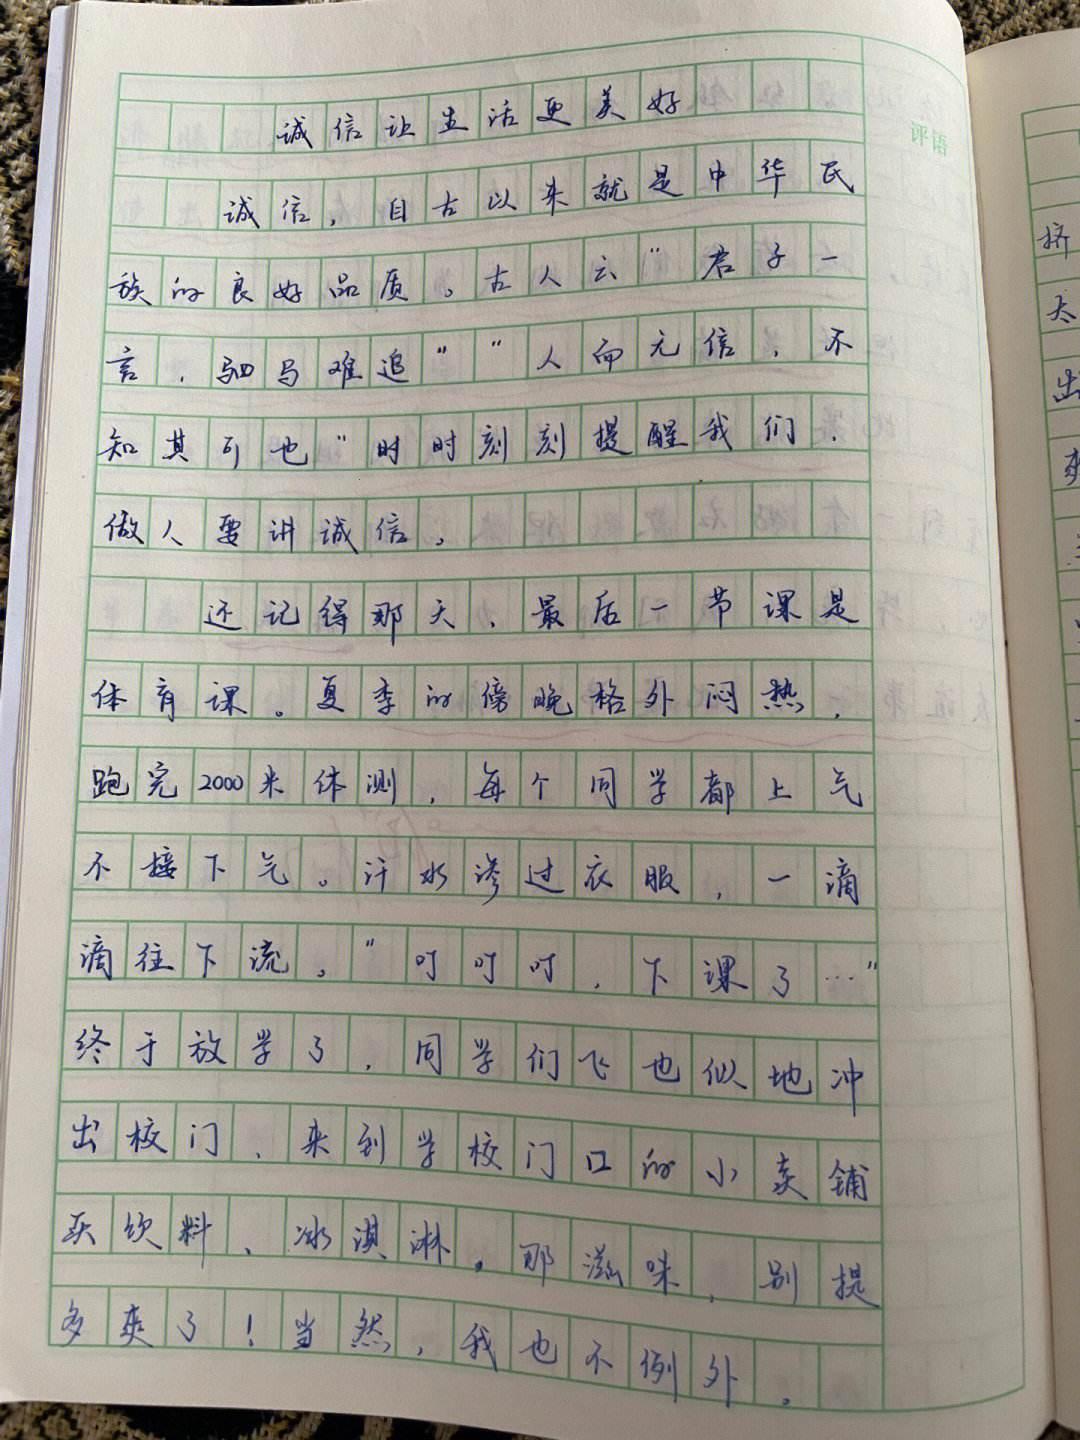 诚信让生活更美好
诚信，自古以来就是中华民
族的良好品质。古人云“君子一
言，驷马难追”“人而无信，不
知其可也”时时刻刻提醒我们，
做人要讲诚信。
还记得那天，最后一节课是
体育课。夏季的傍晚格外闷热，
跑完2000米体测，每个同学都上气
不接下气。汗水渗过衣服，一滴
滴往下流。“叮叮叮，下课了…”
终于放学了，同学们飞也似地冲
出校门，来到学校门口的小卖铺
买饮料、冰淇淋。那滋味，别提
多爽了！当然，我也不例外。
评语
挤
太
出
爽